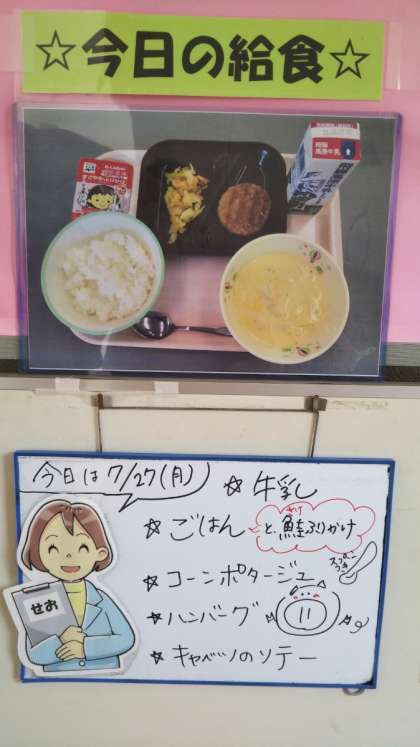 ☆今日の給食☆
今日は7/27(月)
☆ 牛乳
☆ ごはん と 鮭ふりかけ
さけ
☆ コーンポタージュ
☆ ハンバーグ
☆ キャベツのソテー
せお